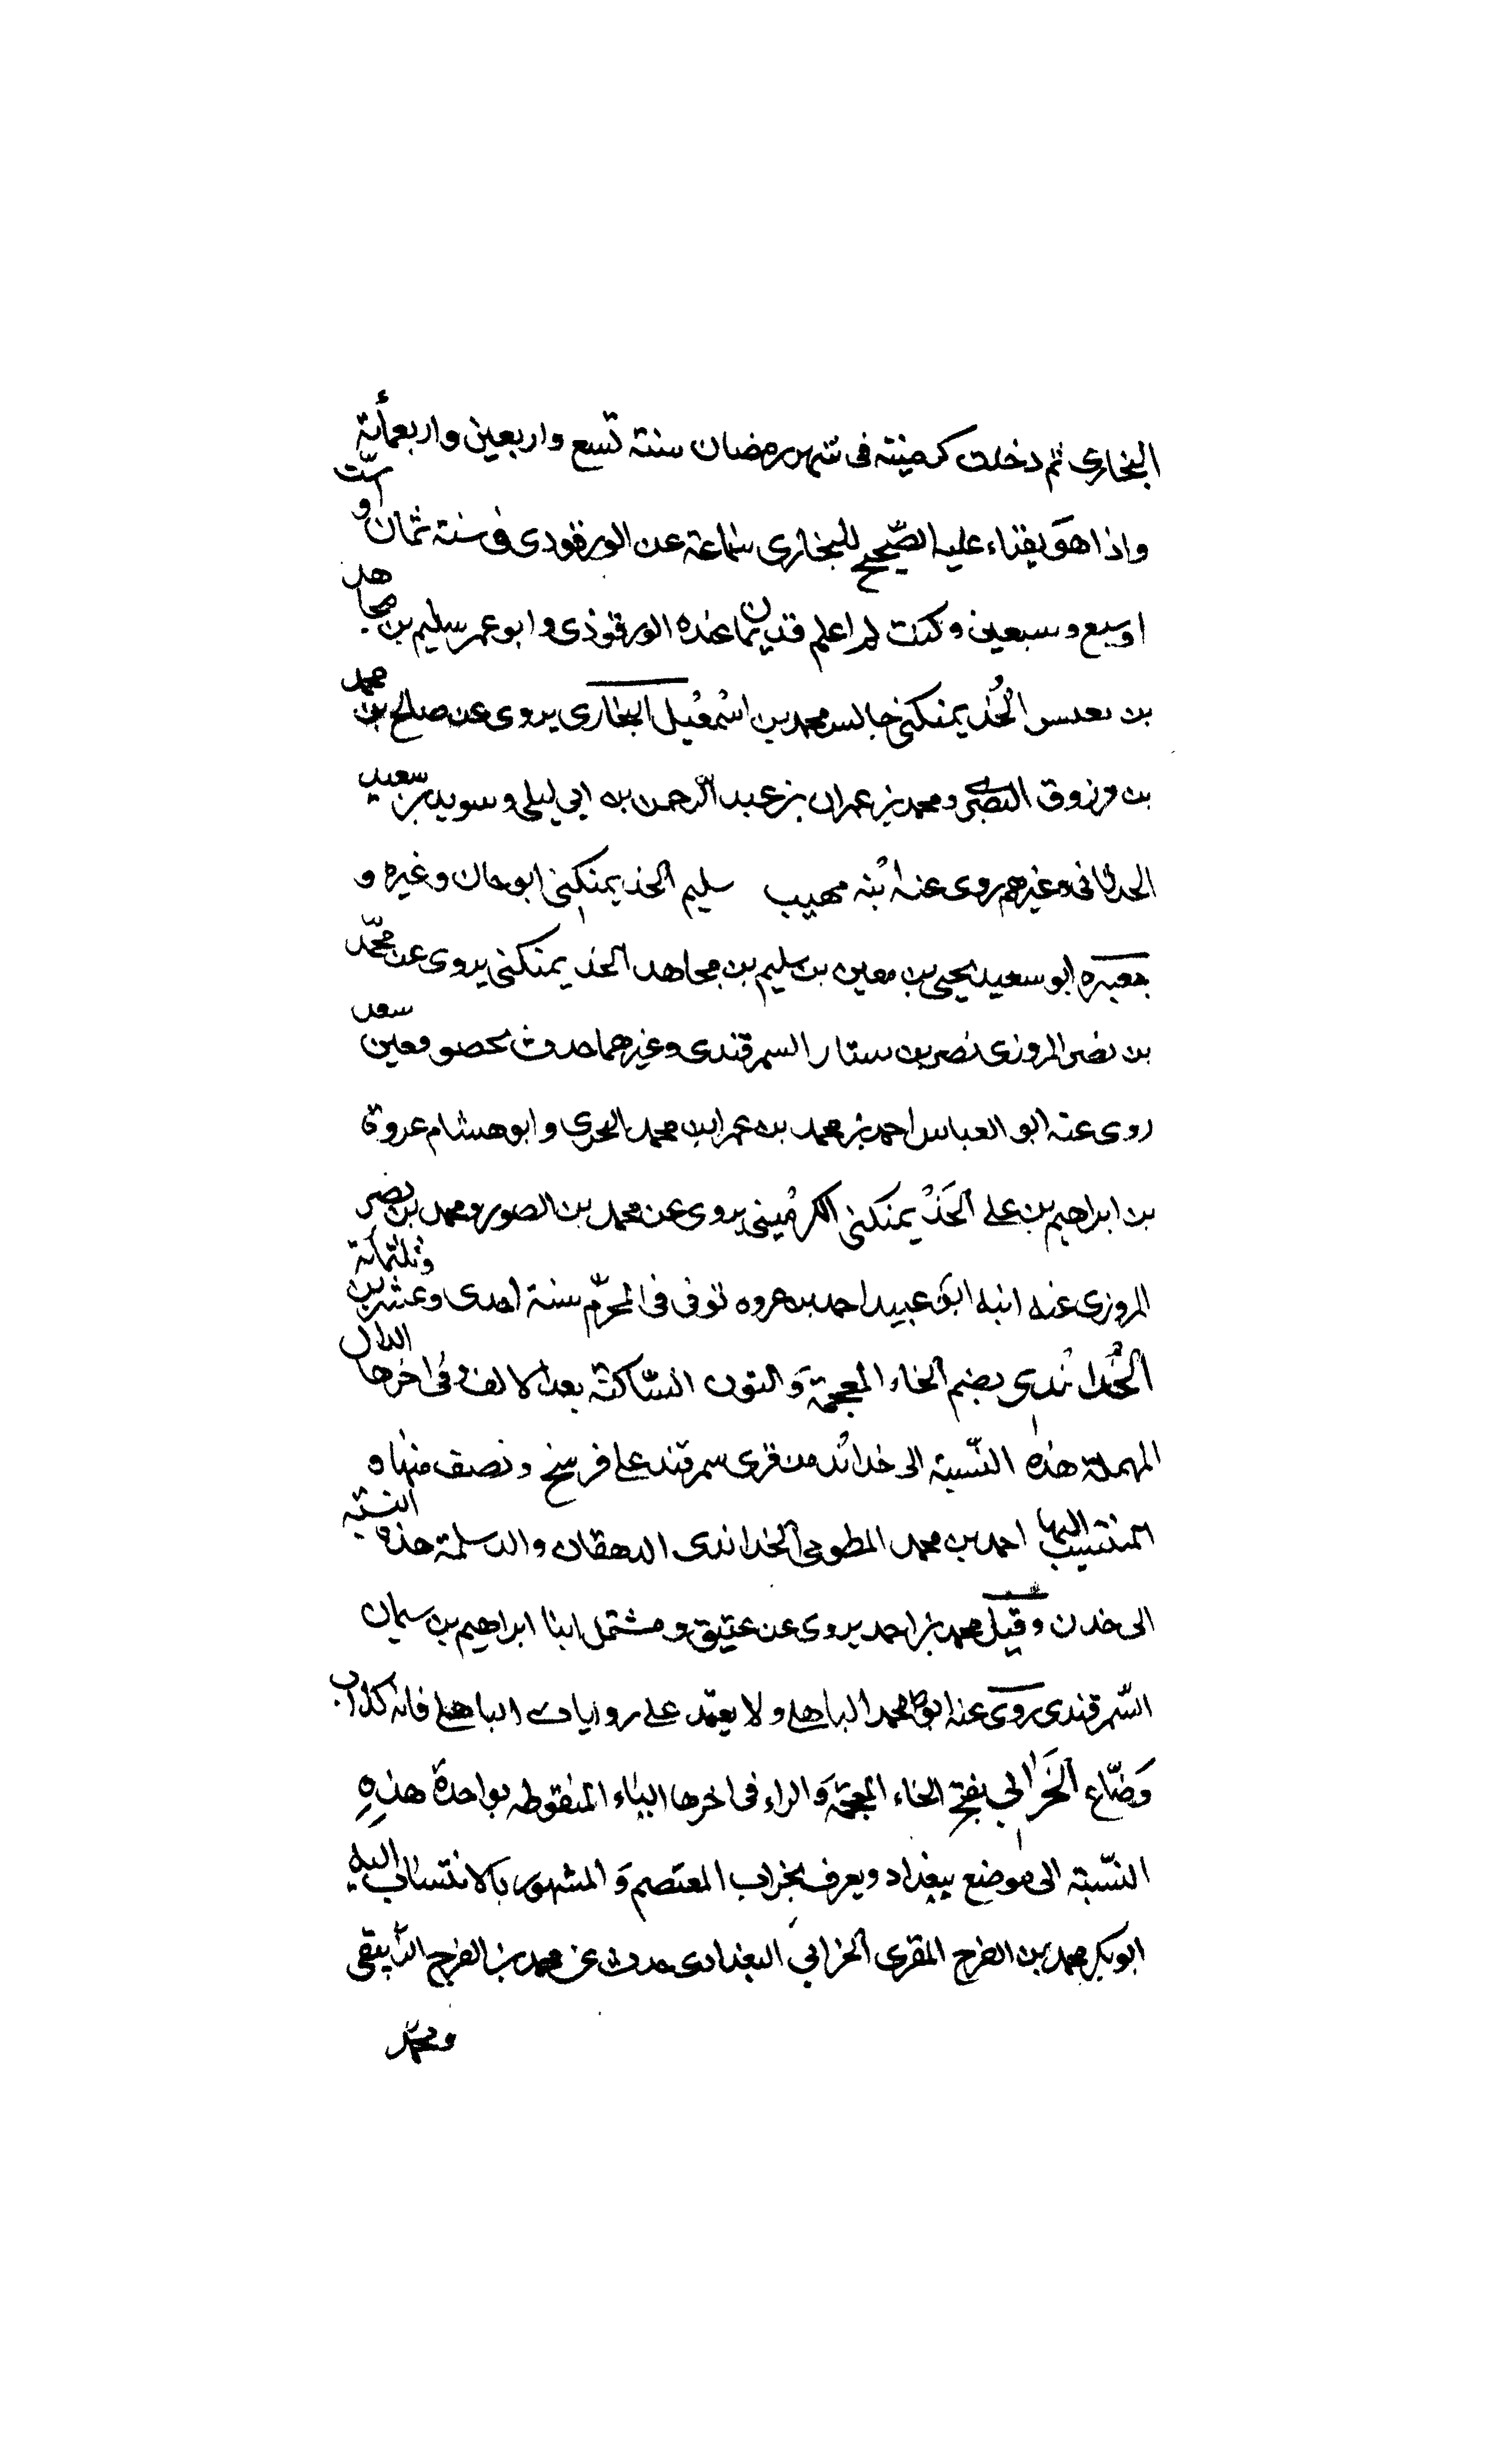 البخاري ثم دخلت كرمينته فى شهر رمضان سنته تسع واربعين واربعمأئة
واذا هو يقراء عليه الصّحيح للبخارى سماعة عن الورقودى فى سنة ثمان او ستّ
او سبع وسبعين وكنت لم اعلم قديمًا ان عنده الورقوذى وابو عمر سليم بن مجاهد
بن يعيس الخُذيمنكني جالس محمد بن اسْمٰعيل البخارى يروى عن صالح بن محمد
بن مرزوق البصرى ومحمد بن عمران بن عبد الرحمن بن ابي ليلى وسويد بن سعيد
الحدثانى وغيرهم روى عنه ابْنه مهيب سليم الخذيمنكنى ابو حان وغيره و
ابو سعيد يحيى بن معين بن سليم بن مجاهد الخذيمنكنى يروى عن محمّد
بن نصر المروزى نصر بن ستار السمرقندى وغيرهما حدث بحصو معين سعد
روى عنه ابو العباس احمد بن محمد بن عمر ابن محمد البحري وابو هشام عروة
بن ابراهيم بن على الخَذْيمنكنى الكرمْينى يروى عن محمد بن الصور ومحمد بن نصر
المروزى عنه ابنه ابو عبيد احمد بن عروه توفى فى المحرّم سنة احدى وعشرين وثلثمأئة
الخُدانْدى بضم الخاء المعجمة وَالنون السّاكنة بعد الالف وفى اخرها الدال
المهملة هذه النّسبته الى خدانْد من قرى سمرقند على فرسخ ونصف منها و
المنتسب اليها احمد بن محمد المطوعى الخداندى الدهقان والد سلمة هذه النسبة
الى خدن وقيل محمد بن احمد يروى عن عتيق ومشتمل ابنا ابراهيم بن سمان
السّمرقندى روى عنه ابو محمد الباهلى ولا يعتمد على روايات الباهلى فانه كذاب
وَضّاع الخَرابي بفتح الخاء المعجمة وَالراء فى اخرها الباء المنقوطه بواحدة هذِهِ
النسّبته الى موضع ببغداد ويعرف بخراب المعتصم وَالمشهور بالانتساب اليه
ابو بكر محمد بن الفرج المقرى الخرابي البغدادى حدث عن محمد بن الفرج
ومحمّد